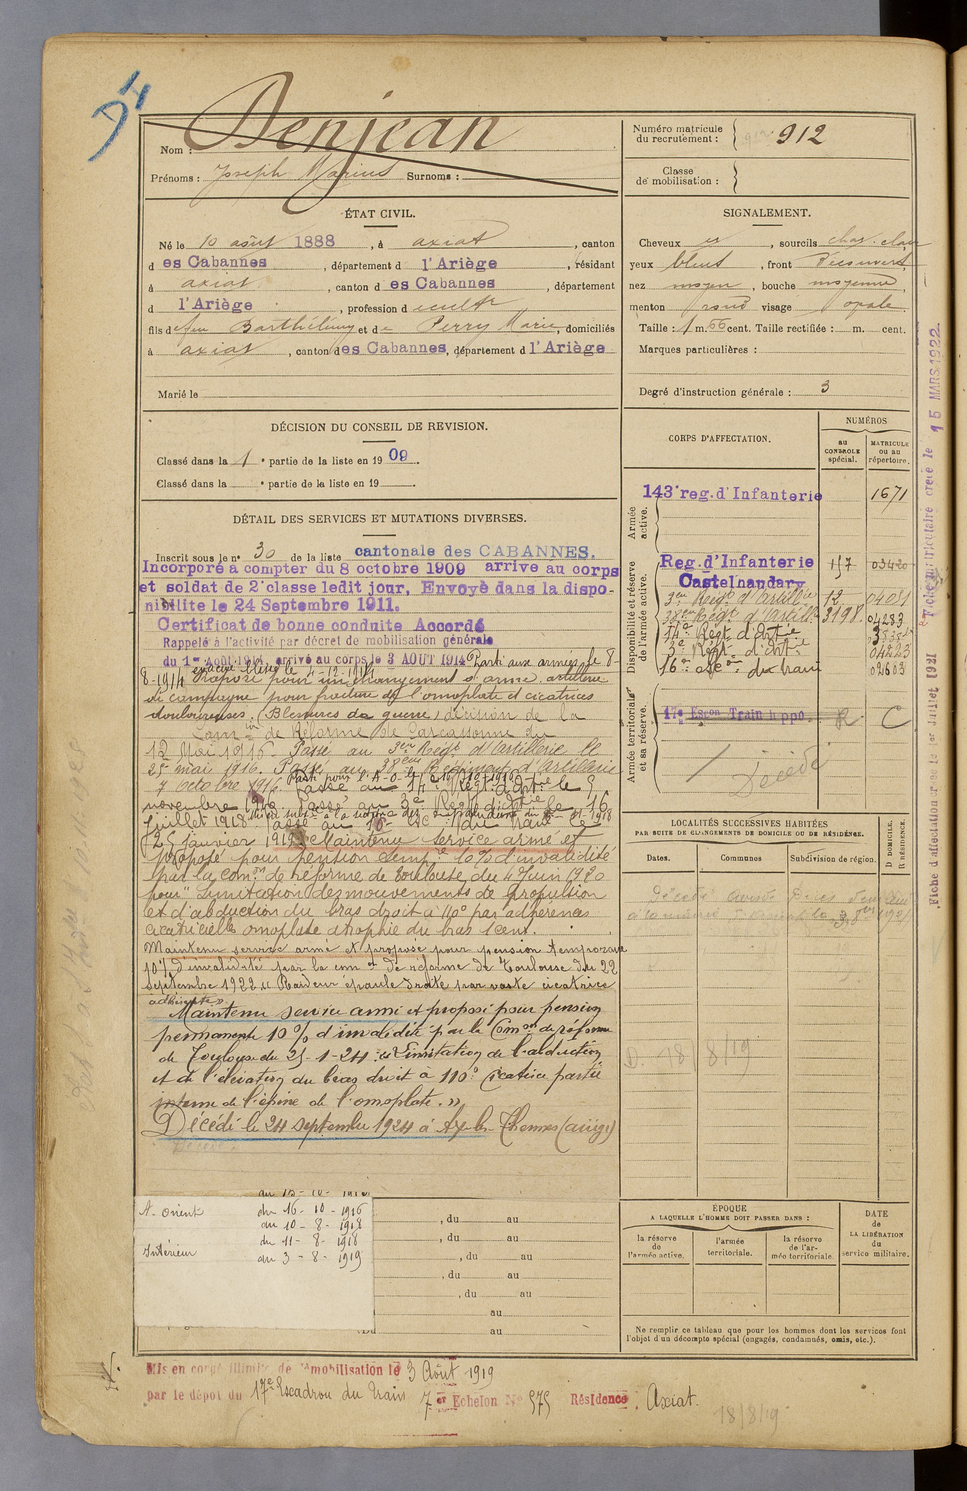 Nom : Denjean
Prénoms : Joseph Marius Surnoms :
Numéro matricule du recrutement : 912
Classe de mobilisation :
ÉTAT CIVIL.
Né le 10 août 1888, à axiat, canton
d es Cabannes, département d l'Ariège, résidant
à axiat, canton d es Cabannes, département
d l'Ariège, profession d cultr
fils de feu Barthélemy et de Perry Marie, domiciliés
à axiat, canton d es Cabannes, département d l'Ariège
Marié le
SIGNALEMENT.
Cheveux , sourcils chat. clair
yeux bleus, front Découvert
nez moyen, bouche moyenne
menton rond visage opale
Taille : 1 m. 66 cent. Taille rectifiée : m. cent.
Marques particulières :
Degré d'instruction générale : 3
DÉCISION DU CONSEIL DE REVISION.
Classé dans la 1e partie de la liste en 1909.
Classé dans la e partie de la liste en 19 .
DÉTAIL DES SERVICES ET MUTATIONS DIVERSES.
Inscrit sous le n° 30 de la liste cantonale des CABANNES.
Incorporé à compter du 8 octobre 1909 arrivé au corps
et soldat de 2e classe ledit jour, Envoyé dans la dispo-
nibilité le 24 Septembre 1911.
Certificat de bonne conduite Accordé
Rappelé à l'activité par décret de mobilisation générale
du 1er Août 1914, arrivé au corps le 3 AOUT 1914 Parti aux armées le 8-
8-1914 Proposé pour un changement d'arme, artillerie
de campagne pour fracture de l'omoplate et cicatrices
douloureuses. (Blessures de guerre) décision de la
Comon de Réforme de Carcassonne du
12 Mai 1916 Passé au 3eme Régt d'Artillerie le
25 mai 1916. Passé au 38eme Régiment d'Artillerie
7 octobre 1916
Passé au 14e Régt d'artie le 9
novembre 1916. Passé au 3e Régt d'artie le 16
juillet 1918
Passé au 16e esc. du train le
25 janvier 1919 Maintenu service armé et
proposé pour pension temp.re 10% d'invalidité
par la Comon de réforme de Toulouse, du 4 juin 1920
pour "Limitation des mouvements de propulsion
et d'abduction du bras droit à 110° par adhérences
cicatricielles omoplate atrophie du bras 1 cent.
Maintenu service armé et proposé pour pension temporaire
10% d'invalidité par la comon de réforme de Toulouse du 22
Septembre 1922 "Raideur épaule droite par vaste cicatrice
adhérente".
Maintenu service armé et proposé pour pension
permanente 10% d'invalidité par la Comon de réforme
de Toulouse du 25-1-24 : "Limitation de l'abduction
et de l'élévation du bras droit à 110° Cicatrice partie
interne de l'épine de l'omoplate."
Décédé le 24 septembre 1924 à Ax-les-Thermes (ariège)
CORPS D'AFFECTATION.
NUMÉROS
au CONTROLE spécial.
MATRICULE ou au répertoire.
Armée active.
143e reg. d'Infanterie 1671
Disponibilité et réserve de l'armée active.
Reg. d'Infanterie
Castelnaudary
3eme Régt d'Artillerie 12
38eme Régt d'Artillie 3198 04283
14e Régt d'artie
3e Régt d'artie 04223
16e esc.on du train 02663
Armée territoriale et sa réserve.
17e Escon Train hippo. R C
Décédé
LOCALITÉS SUCCESSIVES HABITÉES
PAR SUITE DE CHANGEMENTS DE DOMICILE OU DE RÉSIDENCE.
Dates. Communes Subdivision de région. D DOMICILE. R RÉSIDENCE.
D. 18 8/19
ÉPOQUE
A LAQUELLE L'HOMME DOIT PASSER DANS :
la réserve de l'armée active. l'armée territoriale. la réserve de l'armée territoriale.
DATE de LA LIBÉRATION du service militaire.
Ne remplir ce tableau que pour les hommes dont les services font
l'objet d'un décompte spécial (engagés, condamnés, omis, etc.).
A. Orient du 16 - 10 - 1916
au 10 - 8 - 1918
Intérieur du 11 - 8 - 1918
au 3 - 8 - 1919
, du au
, du au
, du au
, du au
, du au
au
Du au
Mis en congé illimité de démobilisation le 3 Août 1919
par le dépôt du 17e Escadron du Train 7e Echelon N° 575 Résidence : Axiat.
18/8/19
Fiche matriculaire créée le 15 MARS 1922
Fiche d'affectation créée le 1er Juillet 1921